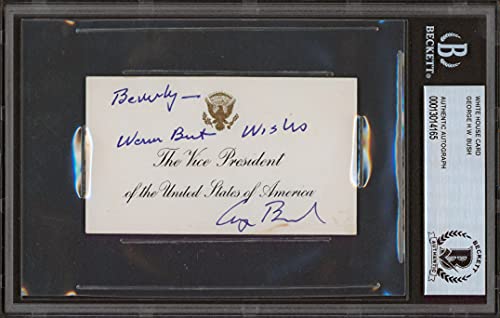 Beverly—
Warm Best Wishes
The Vice President
of the United States of America
G Bush
BECKETT
WHITE HOUSE CARD
GEORGE H.W. BUSH
AUTHENTIC AUTOGRAPH
00013014165
BECKETT
AUTHENTIC